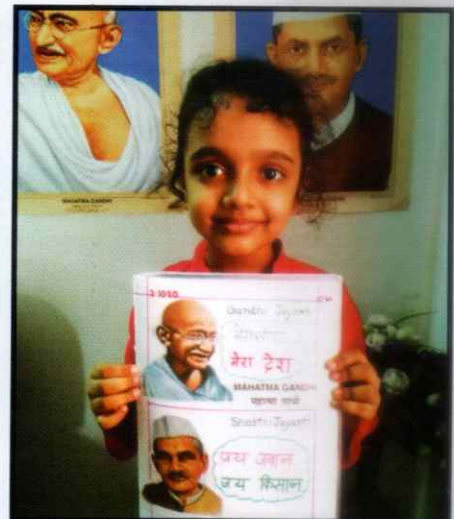 MAHATMA GANDHI
2.10.20
C.W
Gandhi Jayanti
मेरा देश
MAHATMA GANDHI
महात्मा गांधी
Shastri Jayanti
जय जवान
जय किसान